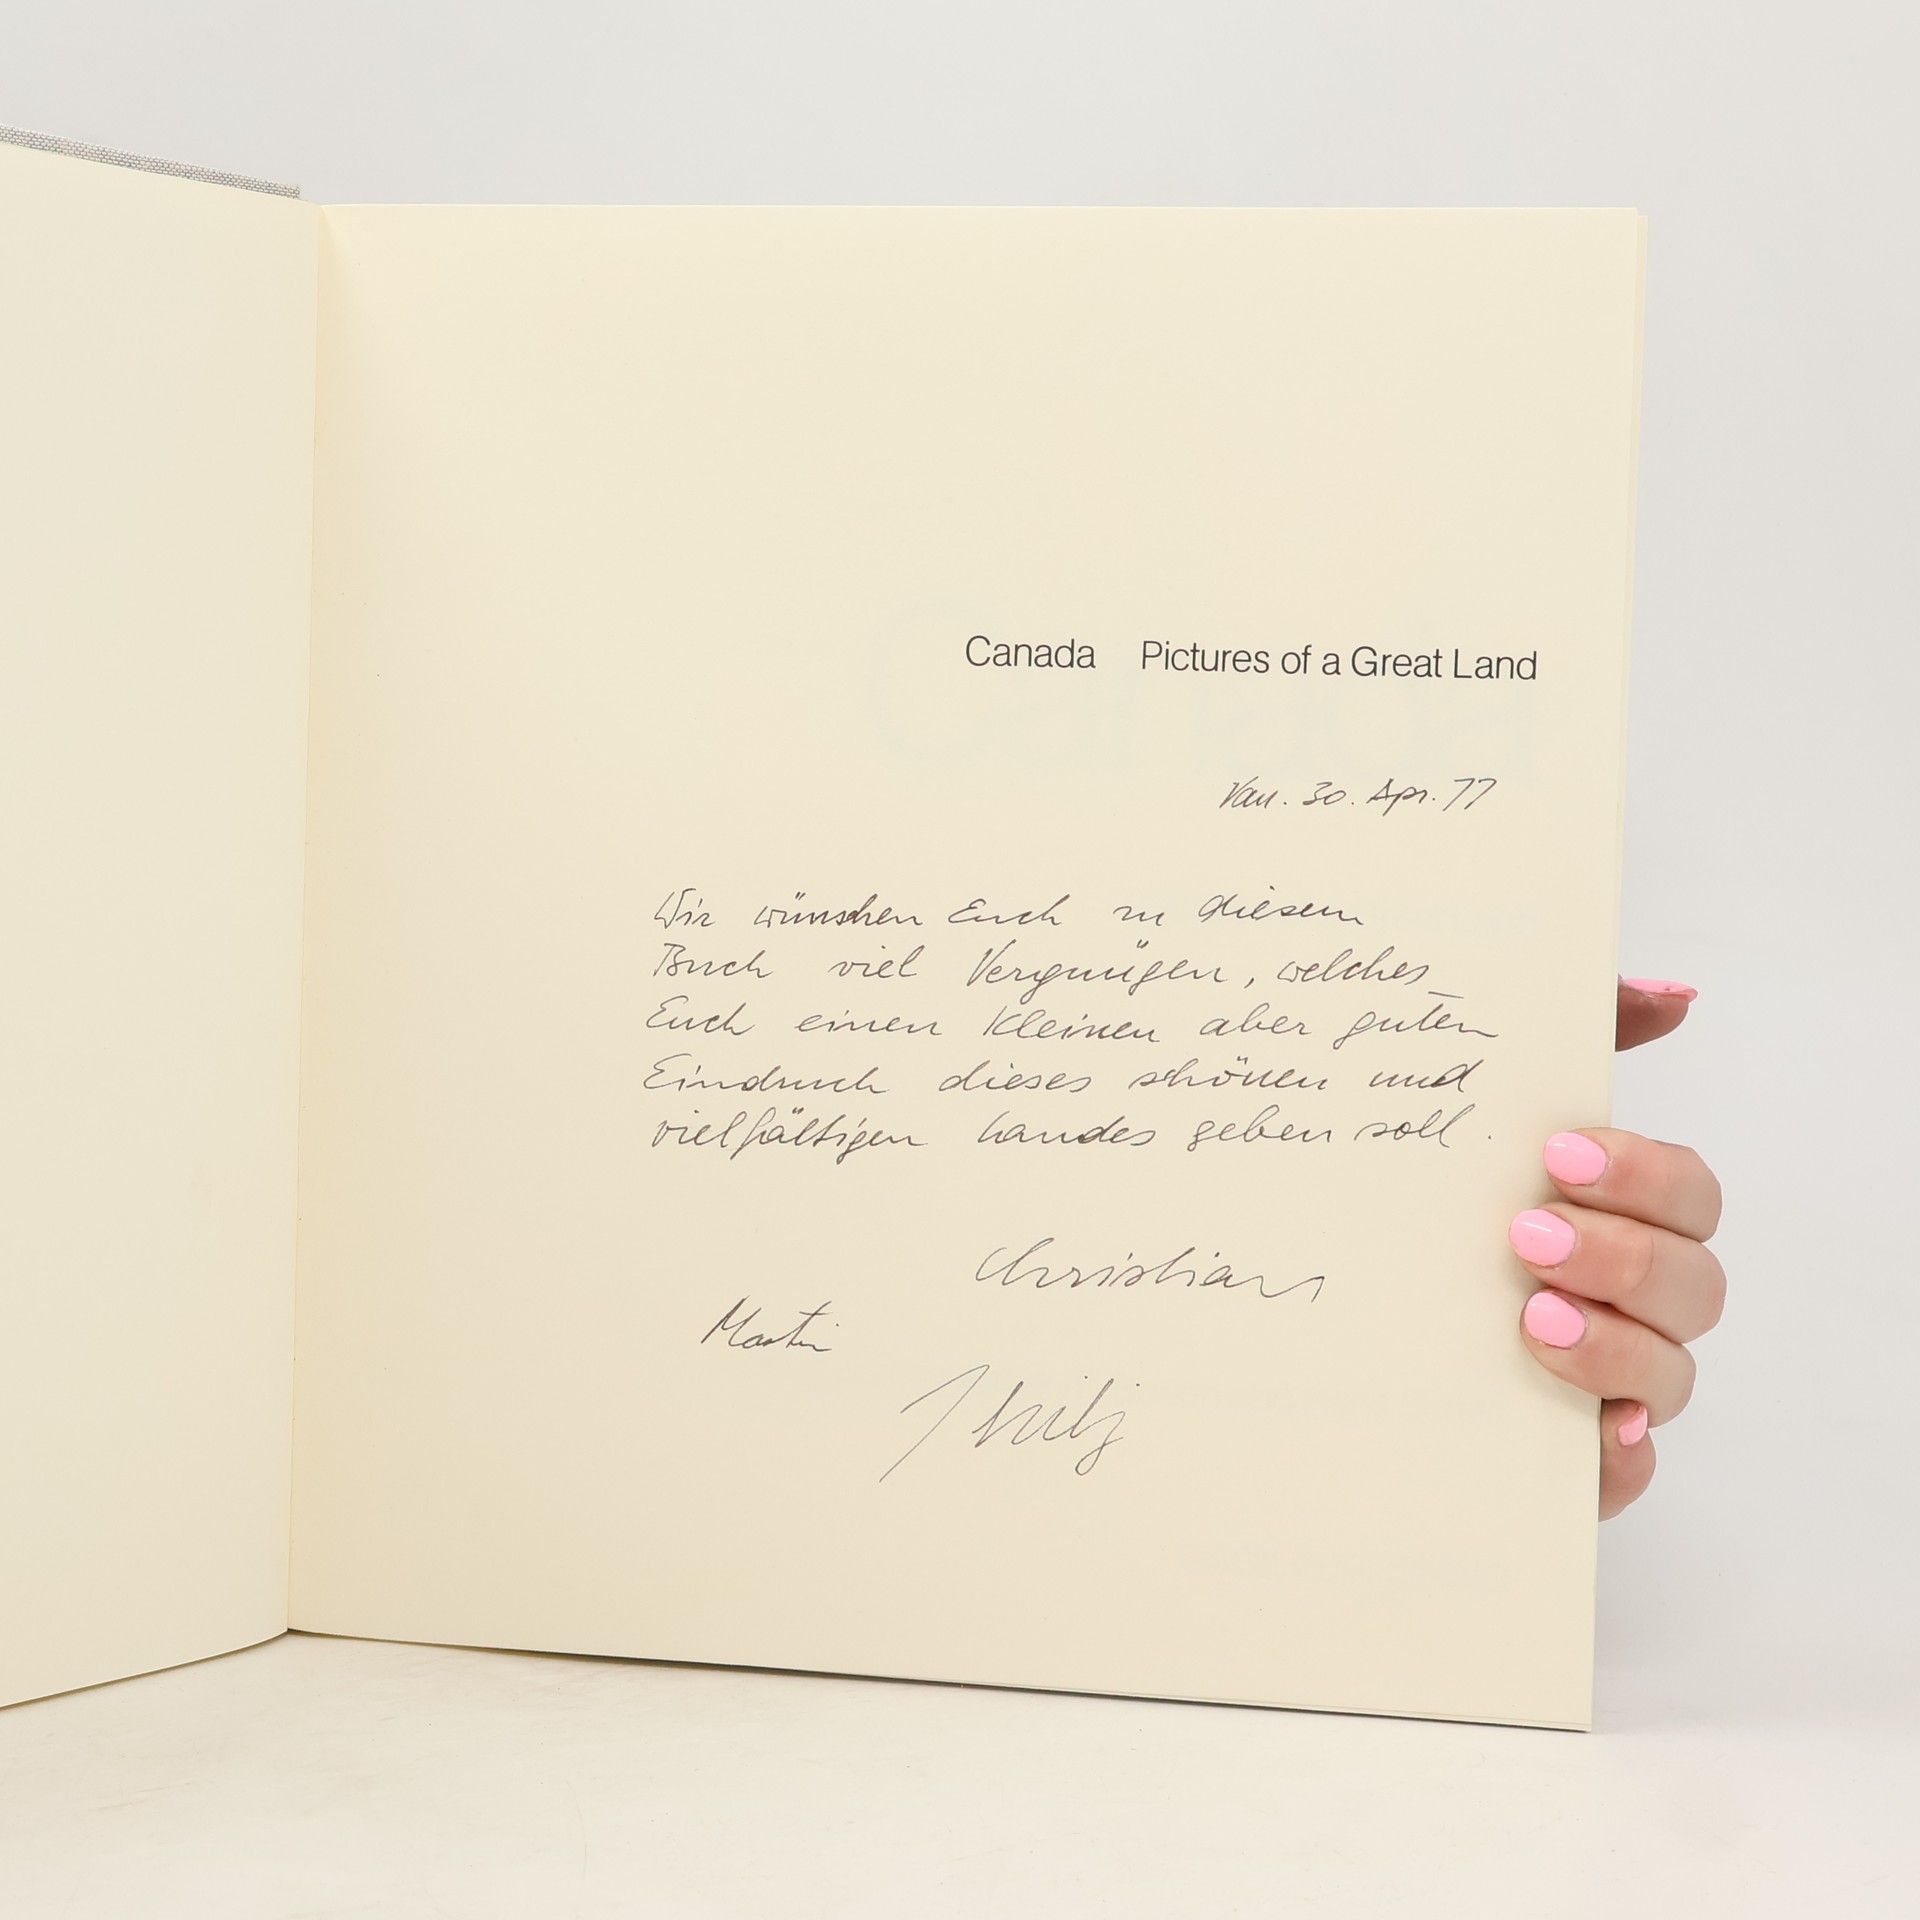 Canada Pictures of a Great Land
Van. 30. Apr. 77
Wir wünschen Euch zu diesem
Buch viel Vergnügen, welches
Euch einen kleinen aber guten
Eindruck dieses schönen und
vielfältigen Landes geben soll.
Christian
Martin